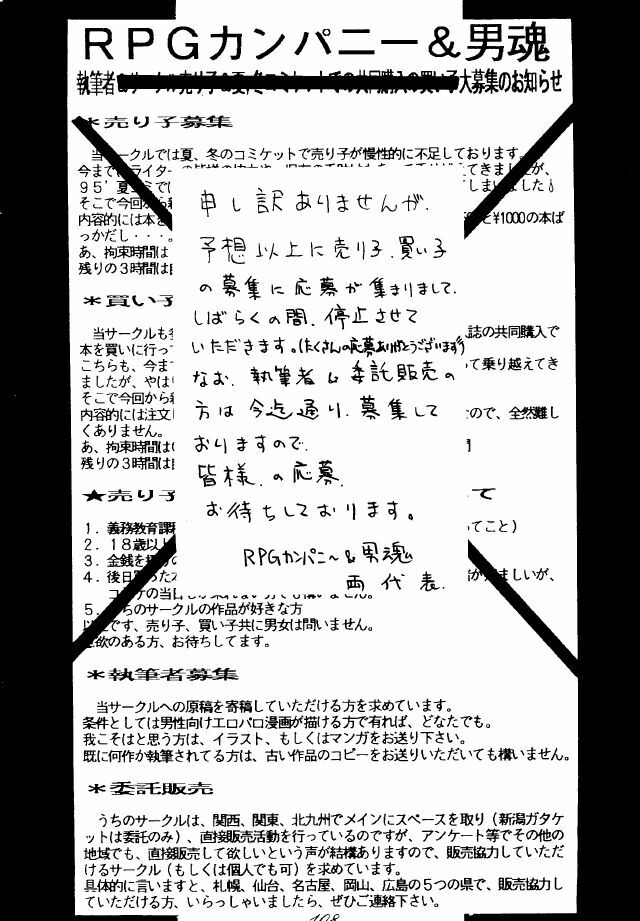 RPGカンパニー&男魂
執筆者 大募集のお知らせ
*売り子募集
当サークルでは夏、冬のコミケットで売り子が慢性的に不足しております。
今まで てきましたが、
95'夏
そこで今回から ¥1000の本ば
内容的には本を
っかだし・・・。
あ、拘束時間は
残りの3時間は
*買い子
当サークルも 誌の共同購入で
本を買いに行っ
こちらも、今ま て乗り越えてき
ましたが、やは
そこで今回から
内容的には注文し ので、全然難し
くありません。
あ、拘束時間は
残りの3時間は
申し訳ありませんが、
予想以上に売り子、買い子
の募集に応募が集まりまして、
しばらくの間、停止させて
いただきます。(たくさんの応募ありがとうございます)
なお、執筆者&委託販売の
方は今迄通り、募集して
おりますので、
皆様、の応募、
お待ちしております。
RPGカンパニー&男魂
両代表.
★売り子 て
1.義務教育課 ってこと)
2.18歳以
3.金銭を
4.後日 ましいが、
5. ちのサークルの作品が好きな方
以上です、売り子、買い子共に男女は問いません。
意欲のある方、お待ちしてます。
*執筆者募集
当サークルへの原稿を寄稿していただける方を求めています。
条件としては男性向けエロパロ漫画が描ける方で有れば、どなたでも。
我こそはと思う方は、イラスト、もしくはマンガをお送り下さい。
既に何作か執筆されてる方は、古い作品のコピーをお送りいただいても構いません。
*委託販売
うちのサークルは、関西、関東、北九州でメインにスペースを取り(新潟ガタケ
ットは委託のみ)、直接販売活動を行っているのですが、アンケート等でその他の
地域でも、直接販売して欲しいという声が結構ありますので、販売協力していただ
けるサークル(もしくは個人でも可)を求めています。
具体的に言いますと、札幌、仙台、名古屋、岡山、広島の5つの県で、販売協力し
ていただける方、いらっしゃいましたら、ぜひご連絡下さい。
108